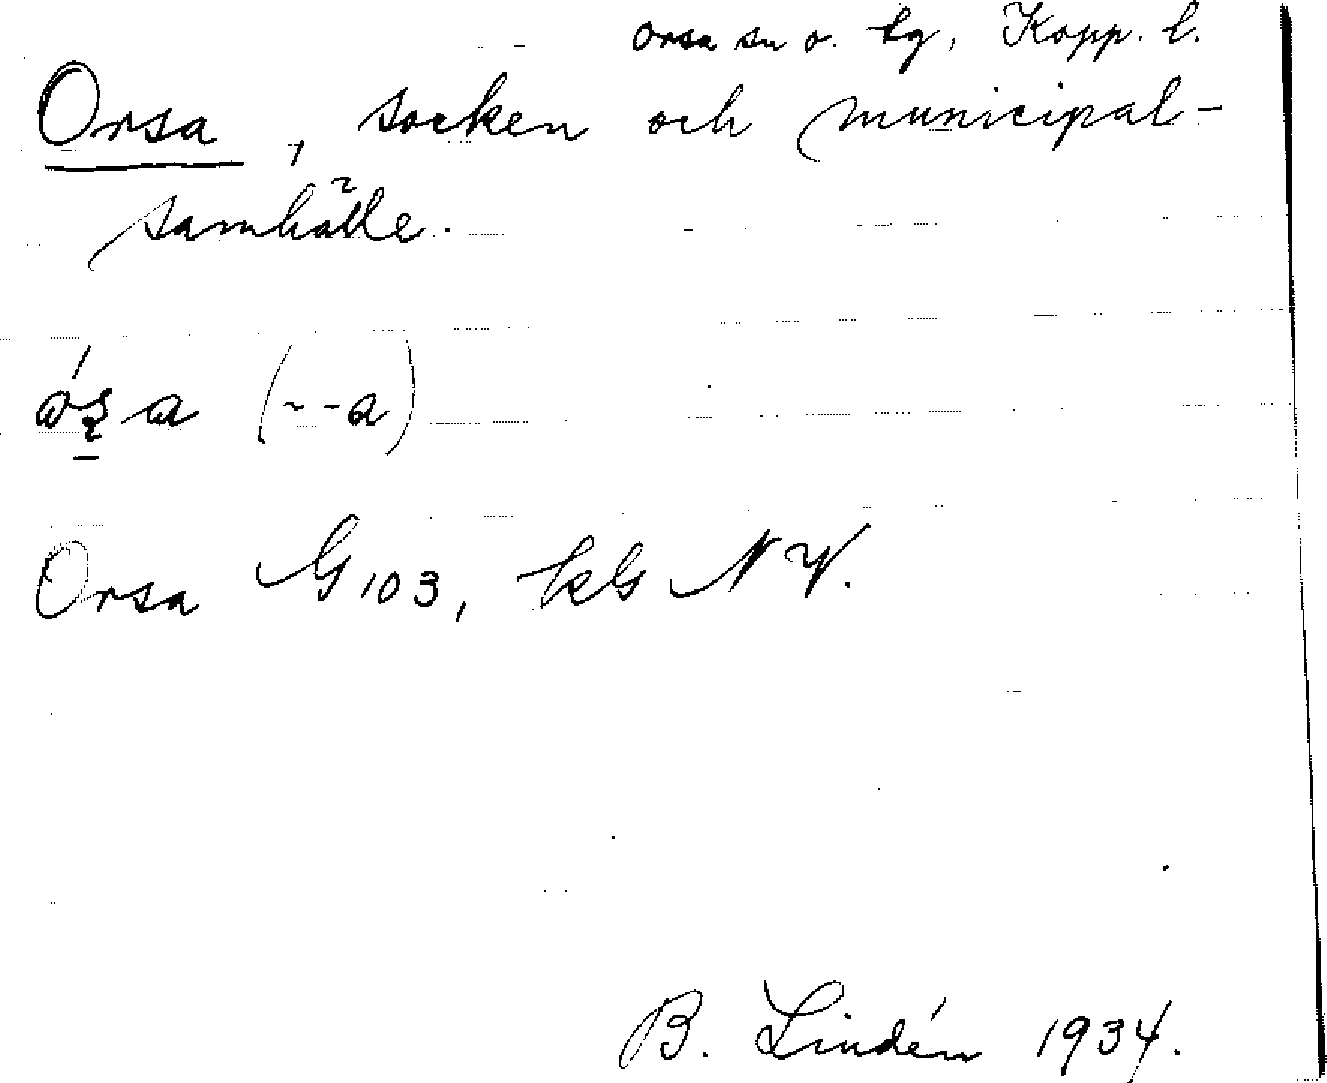 Orsa sn o. tg, Kopp. l.
Orsa, socken och municipal-
samhälle.
(--a)
Orsa G 103, kG NV.
B. Lindén 1934.